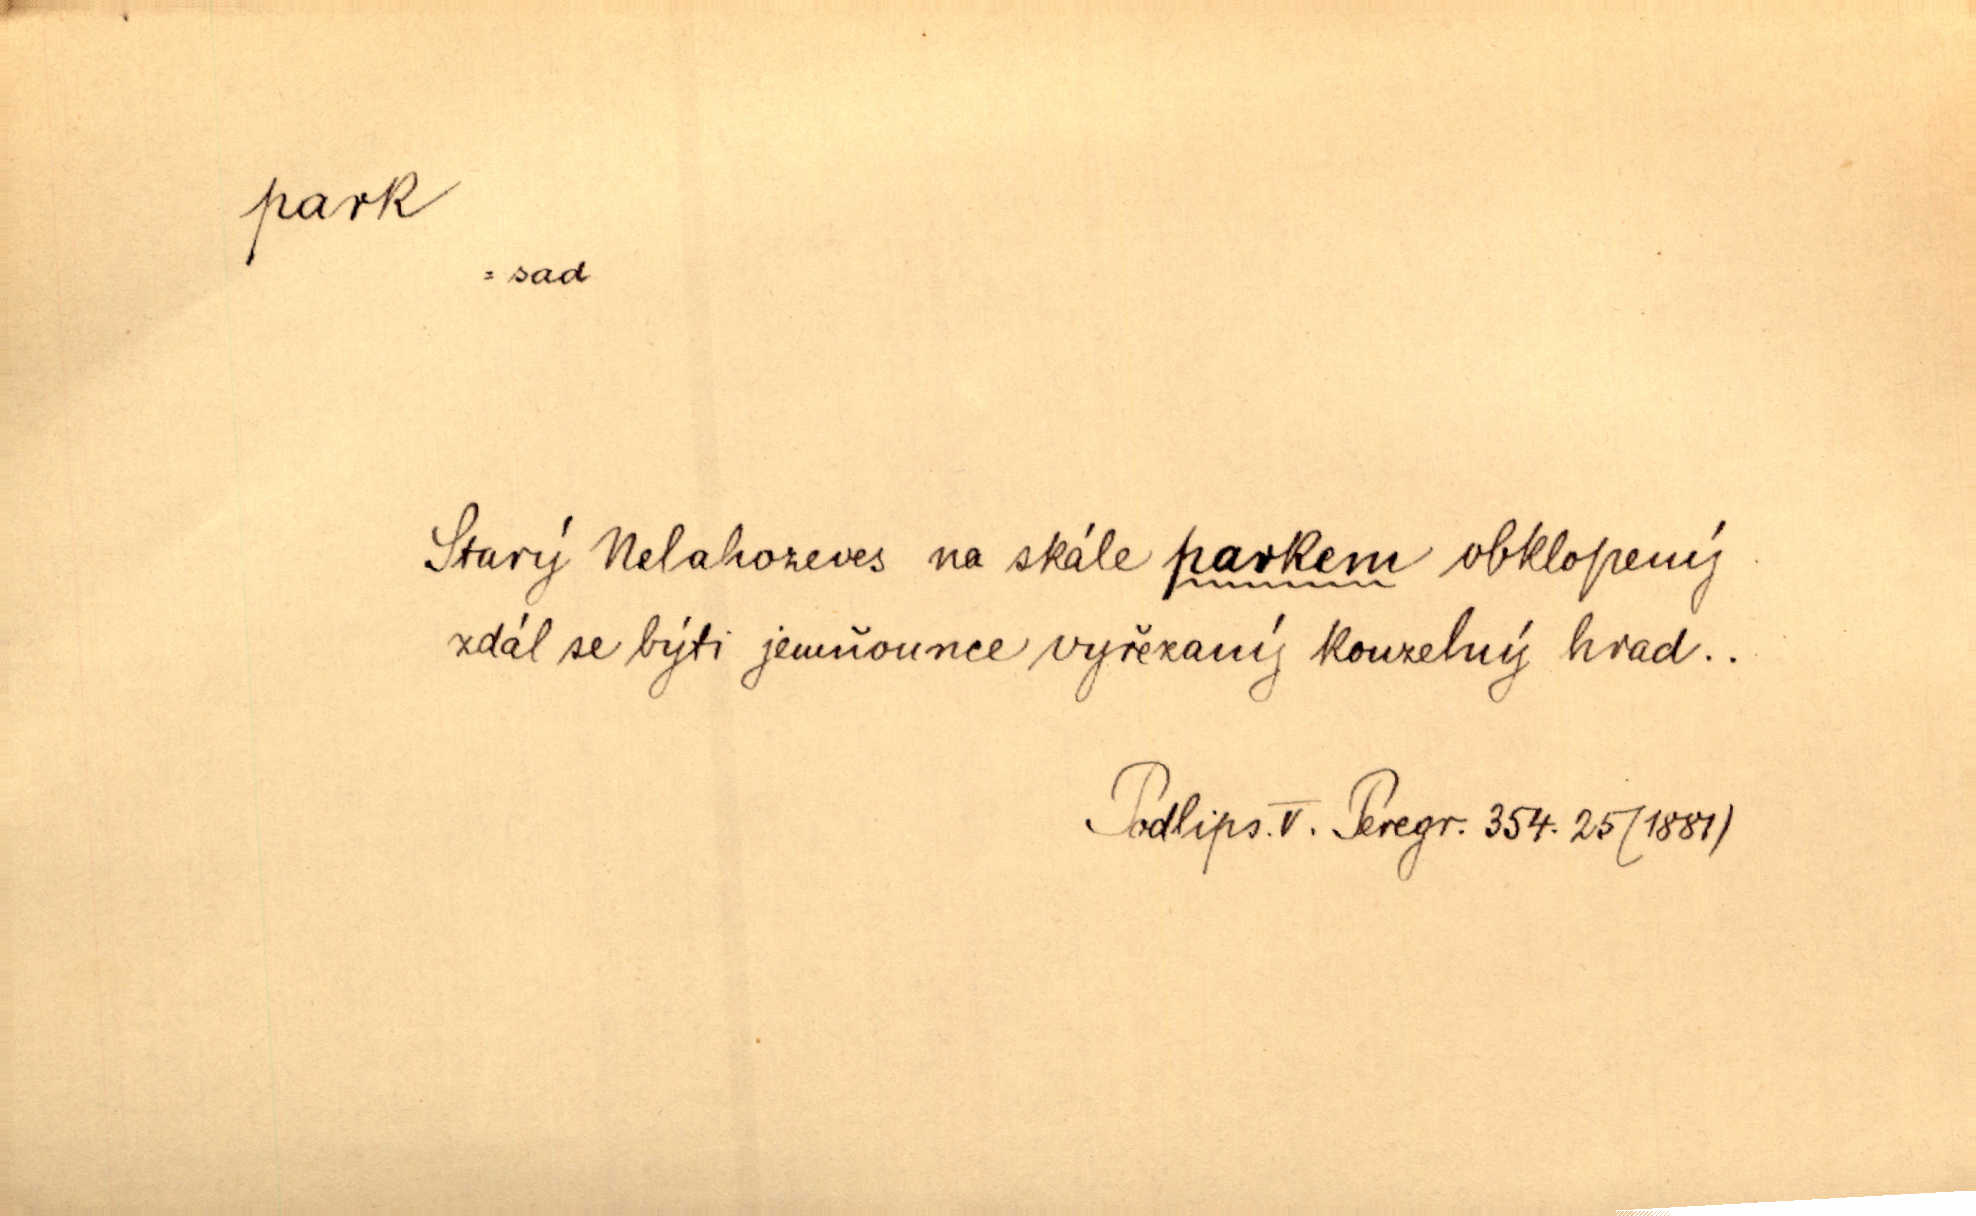 park
= sad
Starý Nelahozeves na skále parkem obklopený
zdál se býti jemňounce vyřezaný kouzelný hrad..
Podlips. V. Peregr. 354. 25 (1881)